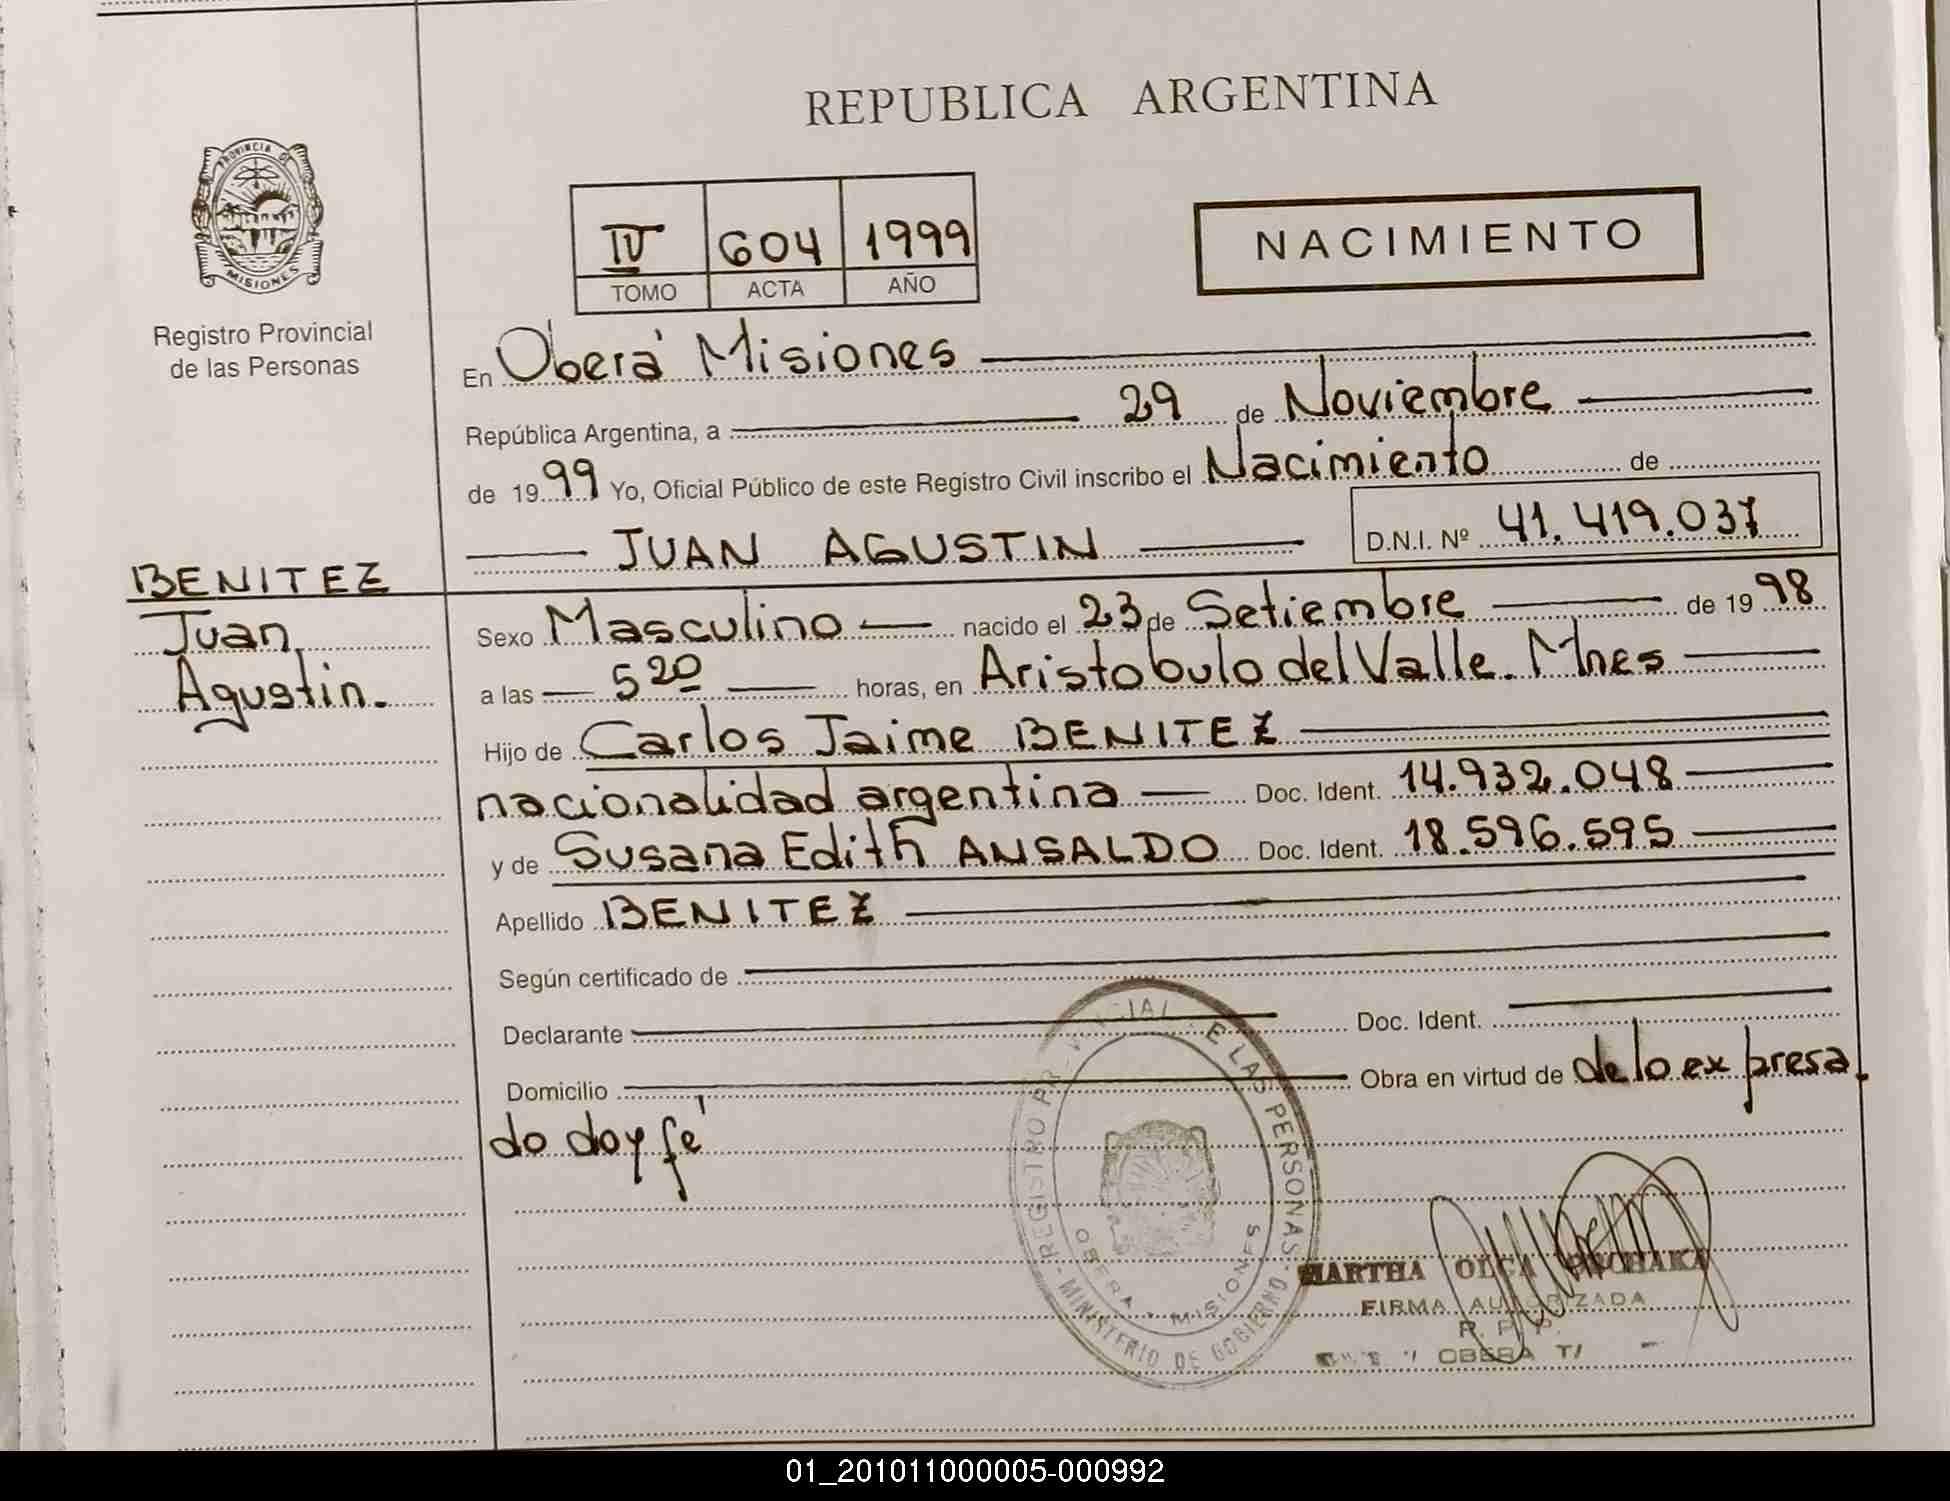 REPUBLICA ARGENTINA
PROVINCIA DE
MISIONES
Registro Provincial
de las Personas
IV 604 1999
TOMO ACTA AÑO
NACIMIENTO
En Oberá Misiones
República Argentina, a 29 de Noviembre
de 1999 Yo, Oficial Público de este Registro Civil inscribo el Nacimiento de
JUAN AGUSTIN D.N.I. Nº 41.419.037
BENITEZ
Juan
Agustin.
Sexo Masculino nacido el 23 de Setiembre de 1998
a las 5 20 horas, en Aristobulo del Valle. Mnes
Hijo de Carlos Jaime BENITEZ
nacionalidad argentina Doc. Ident. 14.932.048
y de Susana Edith ANSALDO Doc. Ident. 18.596.595
Apellido BENITEZ
Según certificado de
Declarante Doc. Ident.
Domicilio Obra en virtud de de lo expresa
do doy fé
REGISTRO PR VI CIAL E LAS PERSONAS
MINISTERIO DE GOBIERNO
OBERA - MISIONES
MARTHA OLGA
FIRMA AUTORIZADA
R. P. P.
OBERA
01_201011000005-000992